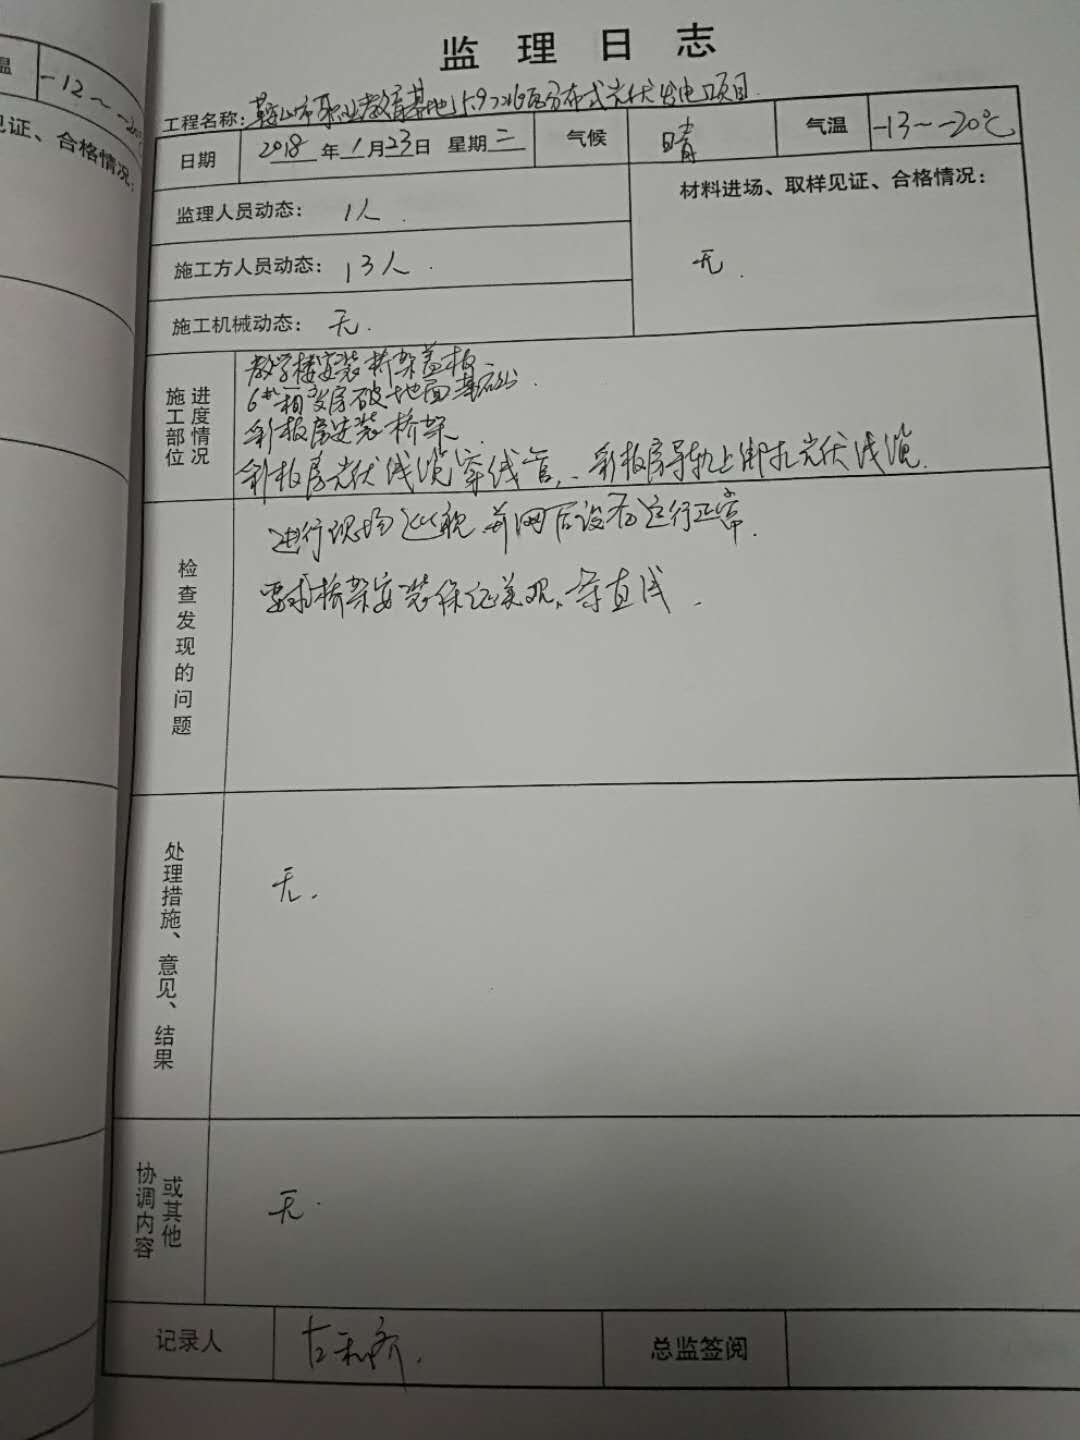 监理日志
温 -12~-20
见证、合格情况:
工程名称: 鞍山市职业教育基地15.9726兆瓦分布式光伏发电项目
日期 2018年1月23日 星期二 气候 晴 气温 -13~-20℃
监理人员动态: 1人.
材料进场、取样见证、合格情况:
无.
施工方人员动态: 13人.
施工机械动态: 无.
施工部位进度情况
教学楼安装桥架盖板.
6#箱变房破地面基础.
彩板房安装桥架.
彩板房光伏线缆穿线管、彩板房导轨上绑扎光伏线缆.
检查发现的问题
进行现场巡视并网后设备运行正常.
要求桥架安装保证美观、横直线.
处理措施、意见、结果
无.
协调内容或其他
无.
记录人
总监签阅